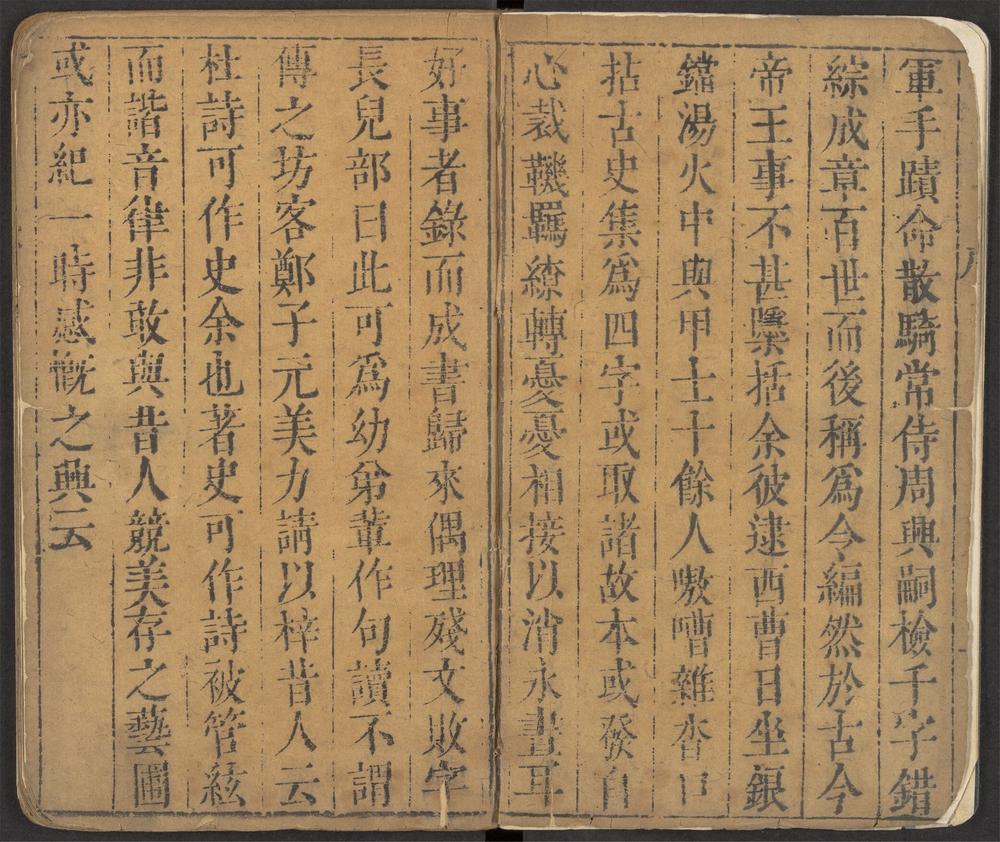 軍手蹟命散騎常侍周興嗣檢千字錯
綜成章百世而後稱爲今編然於古今
帝王事不甚櫽括余彼逮西曹日坐銀
鐺湯火中與甲士十餘人嗷嘈雜沓口
拈古史集爲四字或取諸故本或發自
心裁鞿羈繚轉憂憂相接以消永晝耳
好事者錄而成書歸來偶理殘文敗字
長兒部曰此可爲幼弟輩作句讀不謂
傳之坊客鄭子元美力請以梓昔人云
杜詩可作史余也著史可作詩被管絃
而諧音律非敢與昔人競美存之藝圃
或亦紀一時感慨之興云